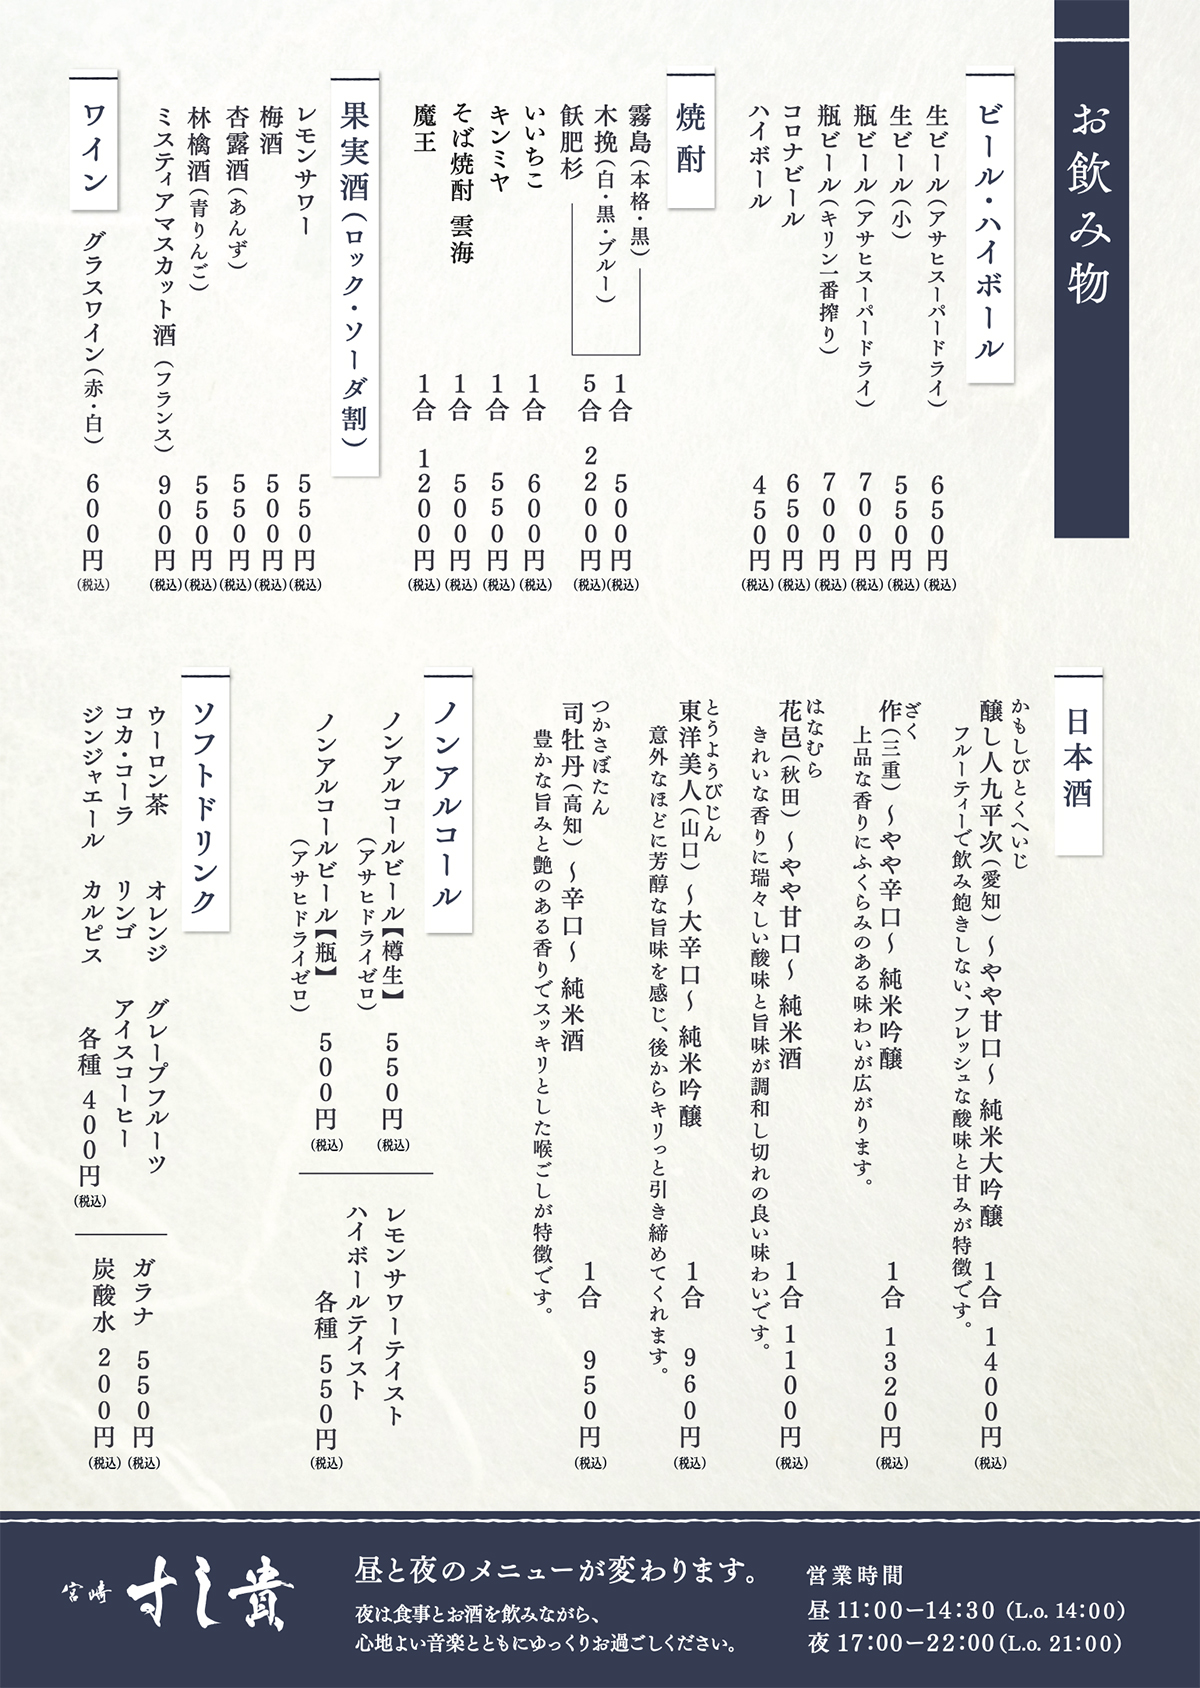 お飲み物
ビール・ハイボール
生ビール（アサヒスーパードライ） 650円（税込）
生ビール（小） 550円（税込）
瓶ビール（アサヒスーパードライ） 700円（税込）
瓶ビール（キリン一番搾り） 700円（税込）
コロナビール 650円（税込）
ハイボール 450円（税込）
焼酎
霧島（本格・黒）
木挽（白・黒・ブルー）
飫肥杉
1合 500円（税込）
5合 2200円（税込）
いいちこ 1合 600円（税込）
キンミヤ 1合 550円（税込）
そば焼酎 雲海 1合 500円（税込）
魔王 1合 1200円（税込）
果実酒（ロック・ソーダ割）
レモンサワー 550円（税込）
梅酒 500円（税込）
杏露酒（あんず） 550円（税込）
林檎酒（青りんご） 550円（税込）
ミスティアマスカット酒（フランス） 900円（税込）
ワイン
グラスワイン（赤・白） 600円（税込）
日本酒
かもしびとくへいじ
醸し人九平次（愛知）〜やや甘口〜 純米大吟醸 1合 1400円（税込）
フルーティーで飲み飽きしない、フレッシュな酸味と甘みが特徴です。
ざく
作（三重）〜やや辛口〜 純米吟醸 1合 1320円（税込）
上品な香りにふくらみのある味わいが広がります。
はなむら
花邑（秋田）〜やや甘口〜 純米酒 1合 1100円（税込）
きれいな香りに瑞々しい酸味と旨味が調和し切れの良い味わいです。
とうようびじん
東洋美人（山口）〜大辛口〜 純米吟醸 1合 960円（税込）
意外なほどに芳醇な旨味を感じ、後からキリっと引き締めてくれます。
つかさぼたん
司牡丹（高知）〜辛口〜 純米酒 1合 950円（税込）
豊かな旨みと艶のある香りでスッキリとした喉ごしが特徴です。
ノンアルコール
ノンアルコールビール【樽生】 550円（税込）
（アサヒドライゼロ）
ノンアルコールビール【瓶】 500円（税込）
（アサヒドライゼロ）
レモンサワーテイスト
ハイボールテイスト
各種 550円（税込）
ソフトドリンク
ウーロン茶 オレンジ グレープフルーツ
コカ・コーラ リンゴ アイスコーヒー
ジンジャエール カルピス 各種 400円（税込）
ガラナ 550円（税込）
炭酸水 200円（税込）
宮崎 すし貴
昼と夜のメニューが変わります。
夜は食事とお酒を飲みながら、
心地よい音楽とともにゆっくりお過ごしください。
営業時間
昼 11:00ー14:30（L.o. 14:00）
夜 17:00ー22:00（L.o. 21:00）